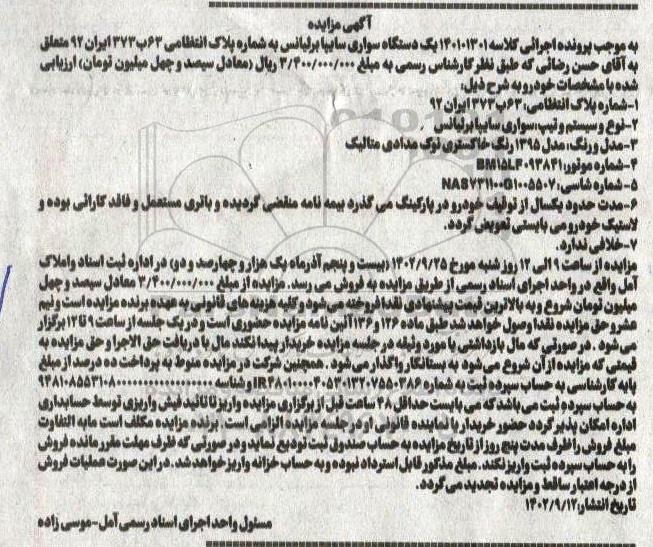 آگهی مزایده
به موجب پرونده اجرائی کلاسه ۱۴۰۱۰۱۳۰۱ یک دستگاه سواری سایپا برلیانس به شماره پلاک انتظامی ۶۳ب۳۷۳ ایران ۹۲ متعلق
به آقای حسن رضائی که طبق نظر کارشناس رسمی به مبلغ ۳/۴۰۰/۰۰۰/۰۰۰ ریال (معادل سیصد و چهل میلیون تومان) ارزیابی
شده با مشخصات خودرو به شرح ذیل:
۱-شماره پلاک انتظامی: ۶۳ب۳۷۳ ایران ۹۲
۲-نوع و سیستم و تیپ: سواری سایپا برلیانس
۳-مدل و رنگ: مدل ۱۳۹۵ رنگ خاکستری نوک مدادی متالیک
۴-شماره موتور: BM15LF۰۹۳۸۴۱
۵-شماره شاسی: NAS۷۳۱۱۰۰G۱۰۰۵۵۰۷
۶-مدت حدود یکسال از توقیف خودرو در پارکینگ می گذرد بیمه نامه منقضی گردیده و باتری مستعمل و فاقد کارائی بوده و
لاستیک خودرو می بایستی تعویض گردد.
۷-خلافی ندارد.
مزایده از ساعت ۹ الی ۱۲ روز شنبه مورخ ۱۴۰۲/۹/۲۵ (بیست و پنجم آذرماه یک هزار و چهارصد و دو) در اداره ثبت اسناد و املاک
آمل واقع در واحد اجرای اسناد رسمی از طریق مزایده به فروش می رسد. مزایده از مبلغ ۳/۴۰۰/۰۰۰/۰۰۰ معادل سیصد و چهل
میلیون تومان شروع و به بالاترین قیمت پیشنهادی نقدا فروخته می شود و کلیه هزینه های قانونی به عهده برنده مزایده است و نیم
عشر و حق مزایده نقدا وصول خواهد شد طبق ماده ۱۲۶ و ۱۳۶ آئین نامه مزایده حضوری است و در یک جلسه از ساعت ۹ تا ۱۲ برگزار
می شود. در صورتی که مال بازداشتی یا مورد وثیقه در جلسه مزایده خریدار پیدا نکند مال با دریافت حق الاجرا و حق مزایده به
قیمتی که مزایده از آن شروع می شود به بستانکار واگذار می شود. همچنین شرکت در مزایده منوط به پرداخت ده درصد از مبلغ
پایه کارشناسی به حساب سپرده ثبت به شماره
به حساب سپرده ثبت می باشد که می بایست حداقل ۴۸ ساعت قبل از برگزاری مزایده واریز تا تائید فیش واریزی توسط حسابداری
اداره امکان پذیر گردد حضور خریدار یا نماینده قانونی او در جلسه مزایده الزامی است. برنده مزایده مکلف است مابه التفاوت
مبلغ فروش را ظرف مدت پنج روز از تاریخ مزایده به حساب صندوق ثبت تودیع نماید و در صورتی که ظرف مهلت مقرر مانده فروش
را به حساب سپرده ثبت واریز نکند. مبلغ مذکور قابل استرداد نبوده و به حساب خزانه واریز خواهد شد. در این صورت عملیات فروش
از درجه اعتبار ساقط و مزایده تجدید می گردد.
تاریخ انتشار: ۱۴۰۲/۹/۱۲
مسئول واحد اجرای اسناد رسمی آمل-موسی زاده